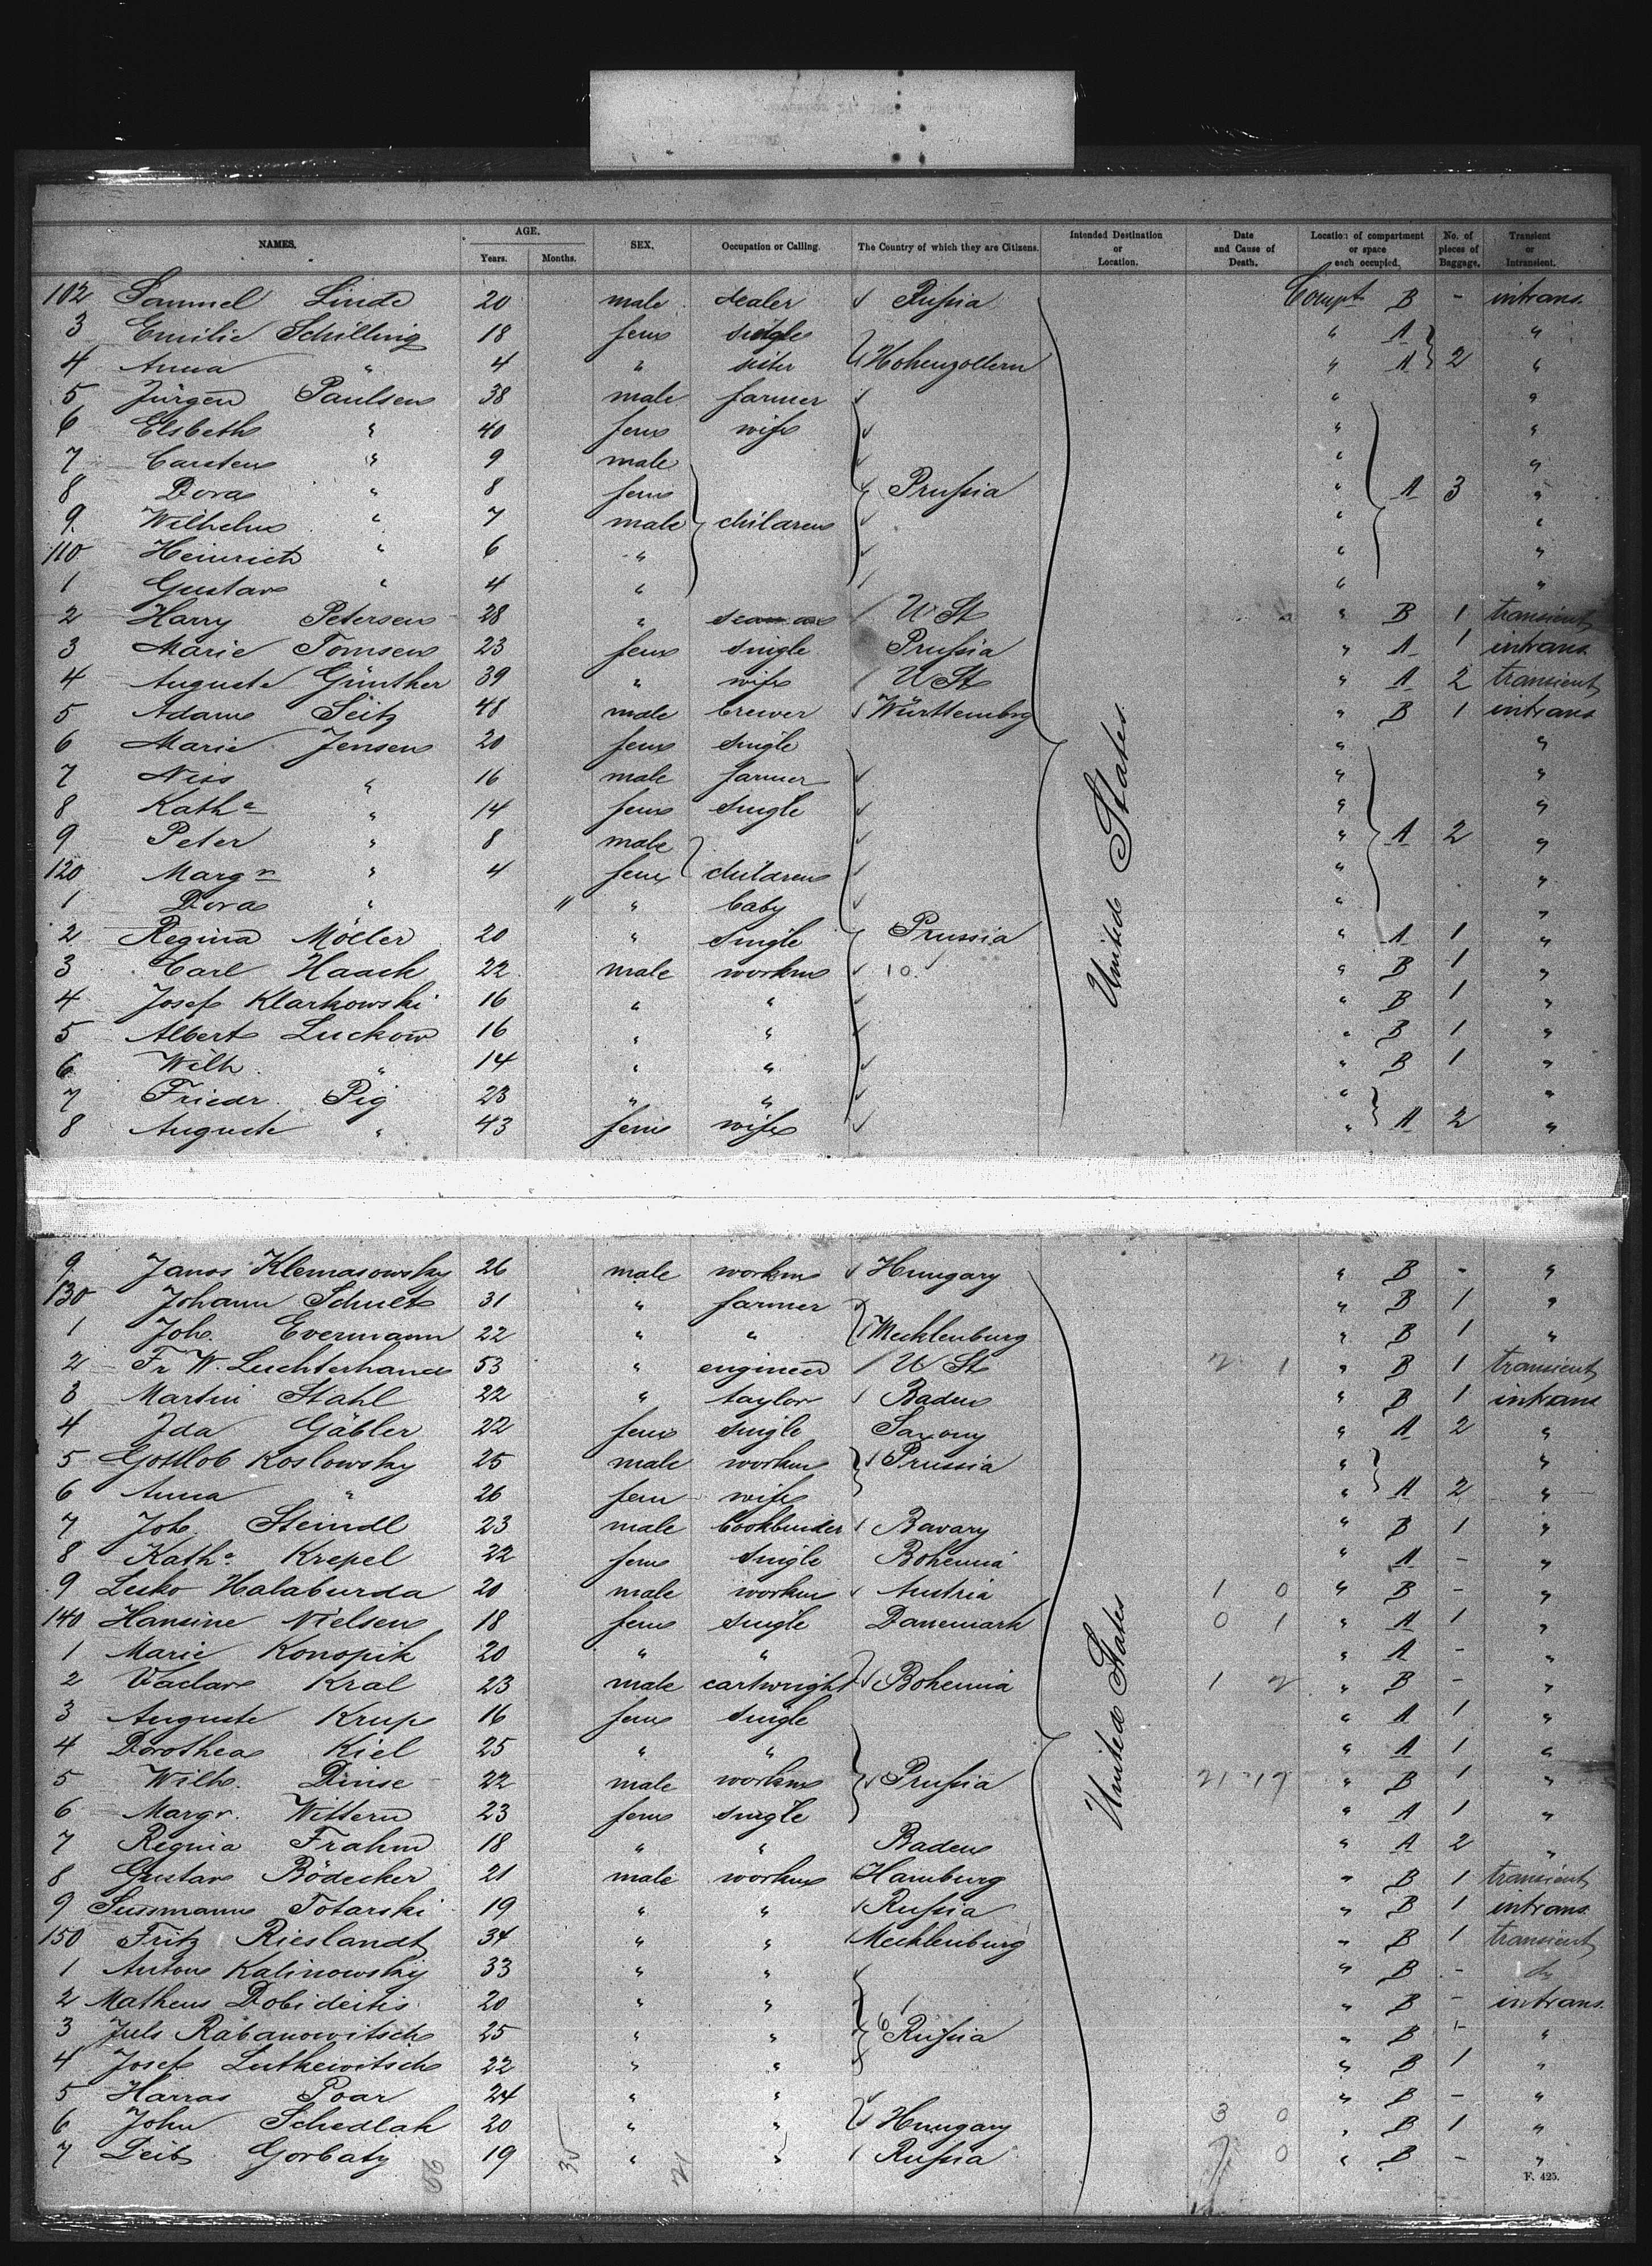 NAMES. AGE. Years. Months. SEX. Occupation or Calling. The Country of which they are Citizens. Intended Destination or Location. Date and Cause of Death. Location of compartment or space each occupied. No. of pieces of Baggage. Transient or Intransient.
102 Samuel Linde 20 male dealer Russia Compt B - intrans.
3 Emilie Schilling 18 fem single " A "
4 Anna " 4 " sister Hohenzollern " A 2 "
5 Jürgen Paulsen 38 male farmer " "
6 Elsbeth " 40 fem wife " "
7 Carsten " 9 male " "
8 Dora " 8 fem Prussia " A 3 "
9 Wilhelm " 7 male children " "
110 Heinrich " 6 " " "
1 Gustav " 4 " " "
2 Harry Petersen 28 " seaman U St " B 1 transient
3 Marie Tomsen 23 fem single Prussia " A 1 intrans
4 Auguste Günther 39 " wife U St " A 2 transient
5 Adam Seitz 48 male brewer Württembrg " B 1 intrans
6 Marie Jensen 20 fem single " "
7 Niss " 16 male farmer " "
8 Kathe " 14 fem single " "
9 Peter " 8 male " A 2 "
120 Margr " 4 fem children " "
1 Dora " 11 " baby " "
2 Regina Möller 20 " single Prussia " A 1 "
3 Carl Haack 22 male workm 10 " B 1 "
4 Josef Klarkowski 16 " " " B 1 "
5 Albert Luckow 16 " " " B 1 "
6 Wilh. " 14 " " " B 1 "
7 Friedr. Pig 23 " " " "
8 Auguste " 43 fem wife " A 2 "
United States.
9 Janos Klemasowsky 26 male workm Hungary " B - "
130 Johann Schult 31 " farmer " B 1 "
1 Joh. Evermann 22 " " Mecklenburg " B 1 "
2 Fr W. Luchterhand 53 " engineer U St 2 1 " B 1 transient
3 Martin Stahl 22 " taylor Baden " B 1 intrans
4 Ida Gäbler 22 fem single Saxony " A 2 "
5 Gottlob Koslowsky 25 male workm Prussia " "
6 Anna " 26 fem wife " A 2 "
7 Joh. Steindl 23 male bookbinder Bavary " B 1 "
8 Kathe Krepel 22 fem single Bohemia " A - "
9 Lesko Halaburda 20 male workm Austria 1 0 " B - "
140 Hansine Nielsen 18 fem single Danemark 0 1 " A 1 "
1 Marie Konopik 20 " " " A - "
2 Vaclav Kral 23 male cartwright Bohemia 1 2 " B - "
3 Auguste Krup 16 fem single " A 1 "
4 Dorothea Kiel 25 " " " A 1 "
5 Wilh. Dinse 22 male workm Prussia 21 17 " B 1 "
6 Margr. Wittern 23 fem single " A 1 "
7 Regina Frahm 18 " " Baden " A 2 "
8 Gustav Bödecker 21 male workm Hamburg " B 1 transient
9 Sussmann Totarski 19 " " Russia " B 1 intrans.
150 Fritz Rieslandt 34 " " Mecklenburg " B 1 transient
1 Anton Kalinowsky 33 " " " B - do
2 Matheus Dobideitis 20 " " " B - intrans.
3 Juls Rabanowitsch 25 " " 6 Russia " B 1 "
4 Josef Lutkewitsch 22 " " " B 1 "
5 Harras Poar 24 " " " B - "
6 John Schedlak 20 " " Hungary 3 0 " B 1 "
7 Leib Gorbaty 19 " " Russia 0 " B - "
United States
35 21
F. 425.